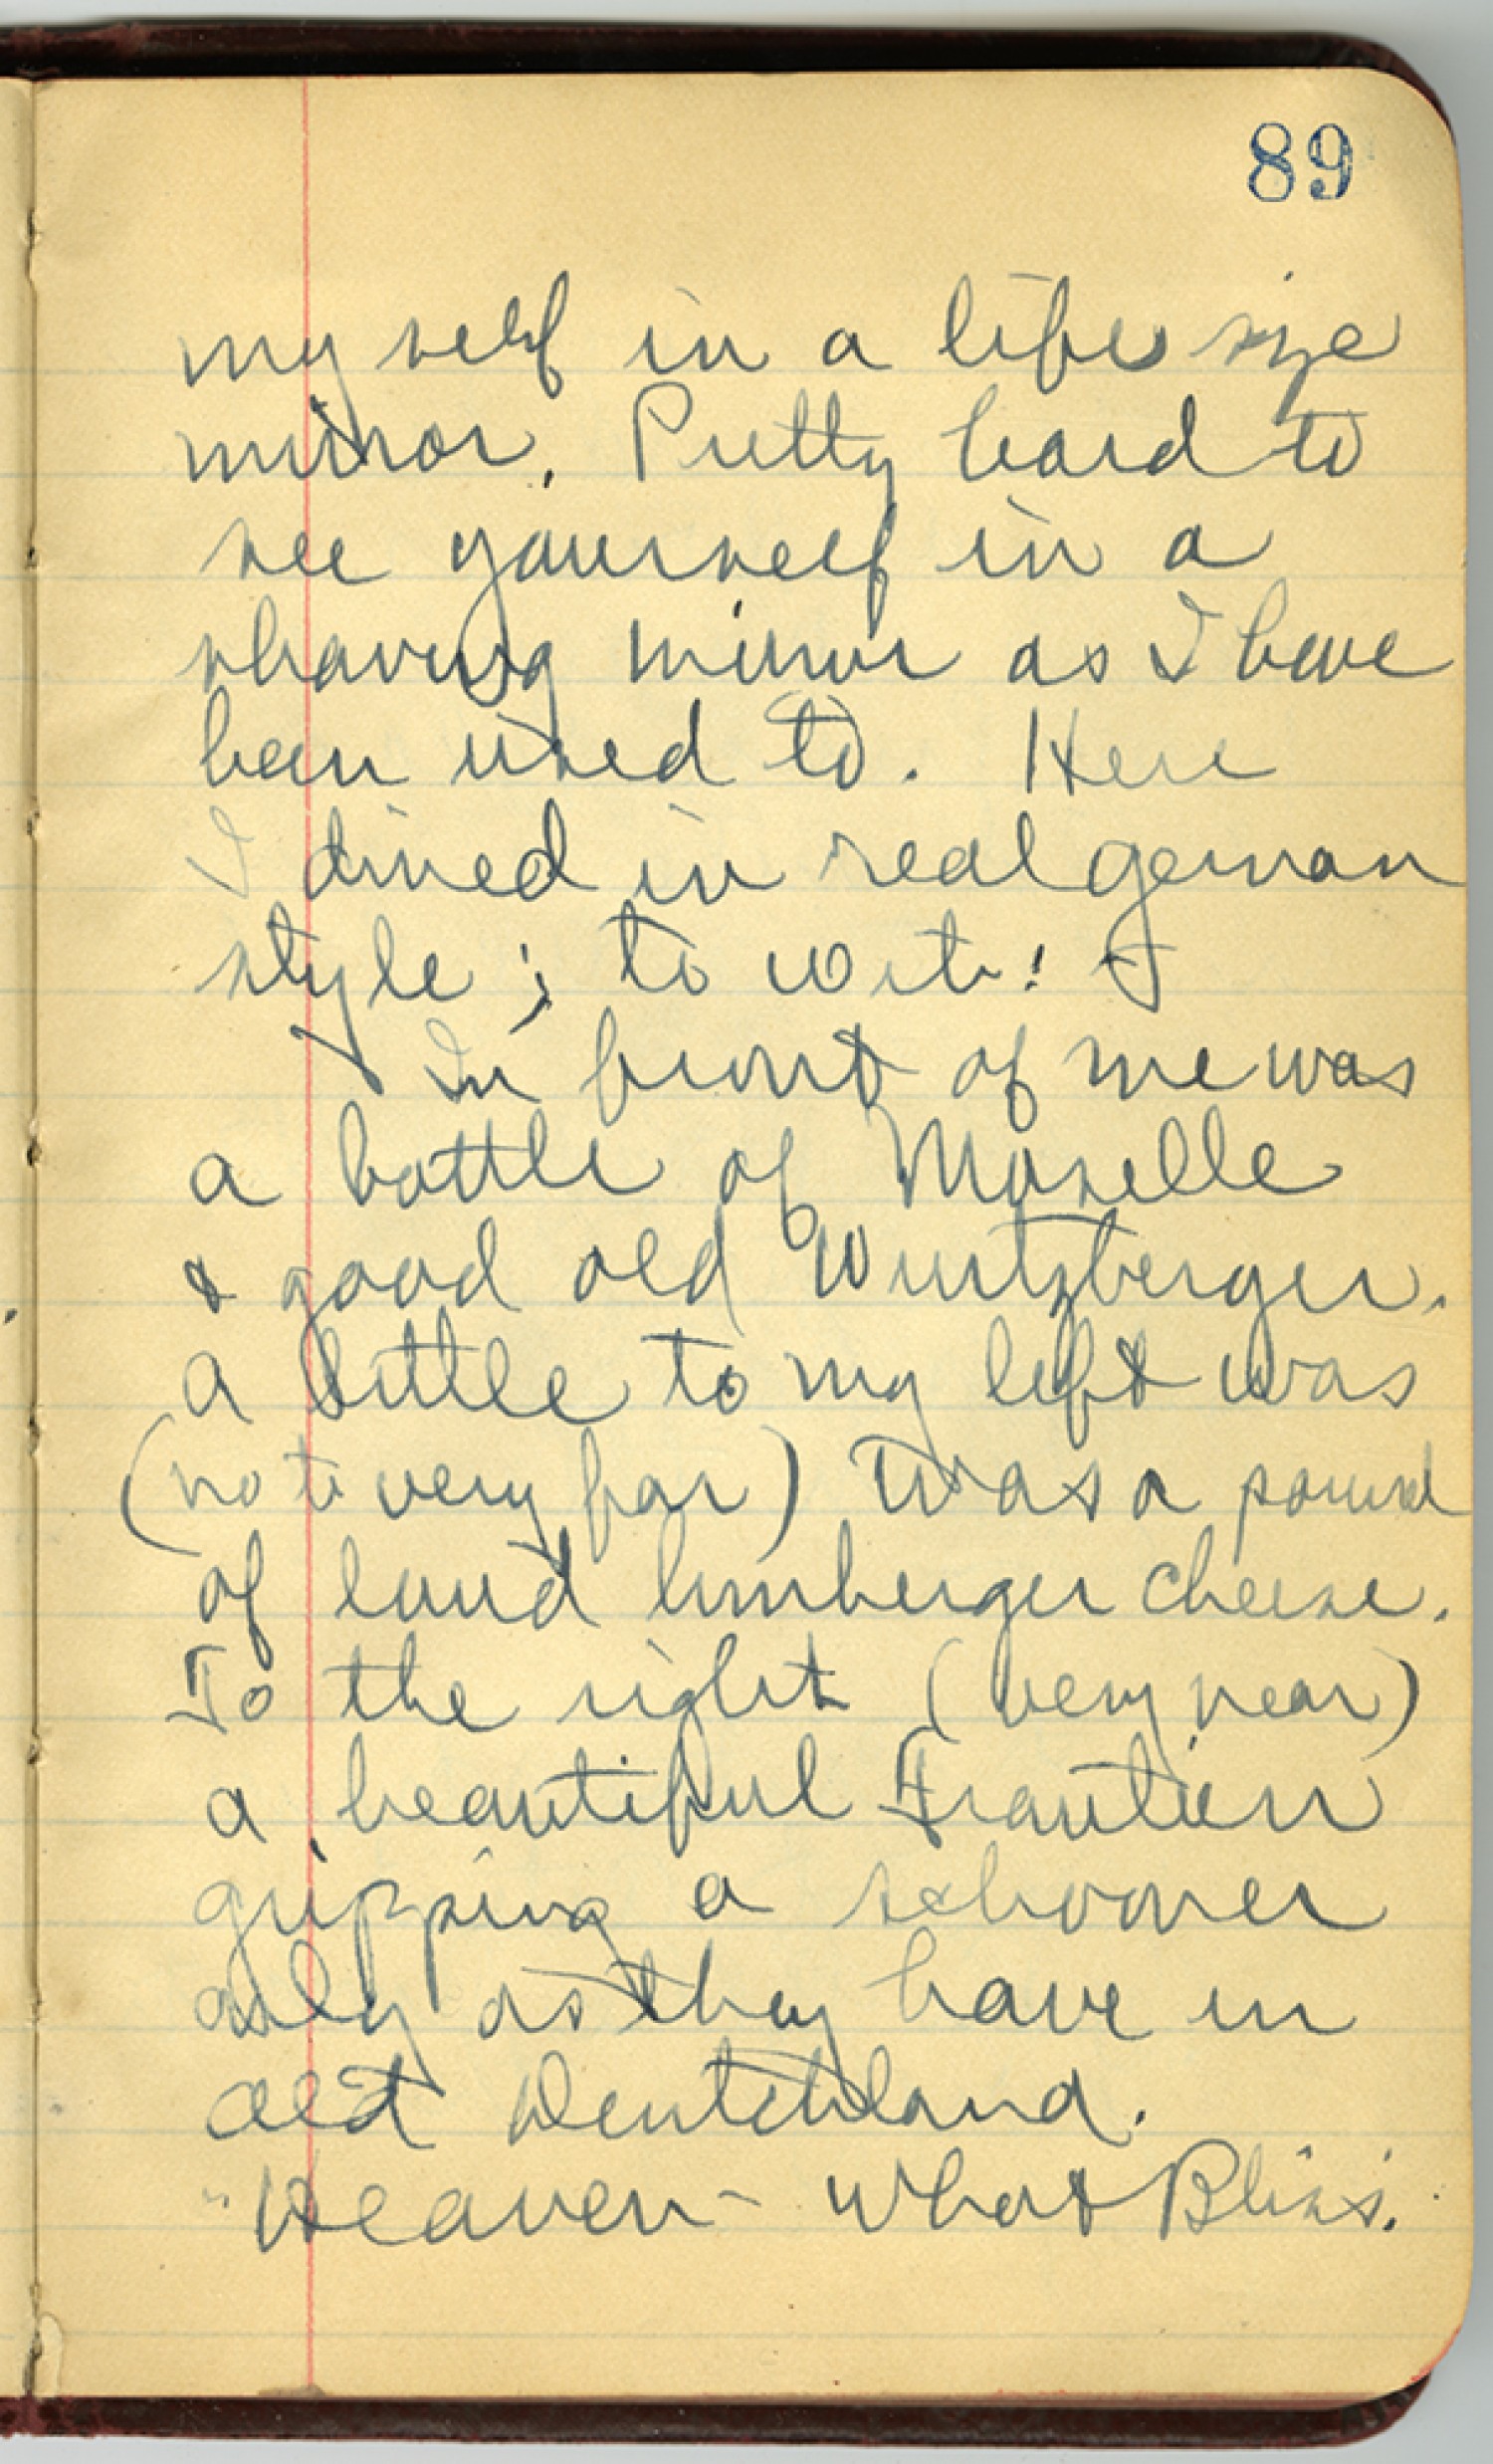 89
myself in a life size
mirror. Pretty hard to
see yourself in a
shaving mirror as I have
been used to. Here
I dined in real german
style; to wit: I
In front of me was
a bottle of Moselle
& good old Wurtzberger.
a little to my left was
(not very far) was a pound
of loud limberger cheese.
To the right (very near)
a beautiful
gripping a schooner
only as they have in
old Deutchland.
"Heaven - what Bliss.